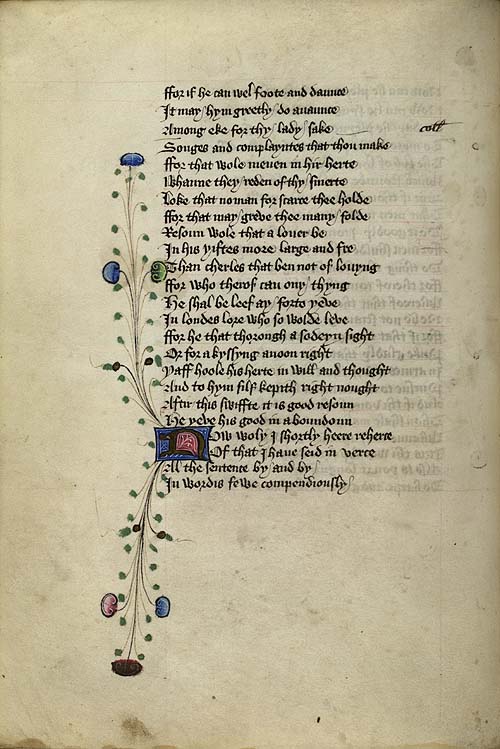 ffor if he can wel foote and daunce
It may hym greetly do avaunce
Among eke for thy lady sake
Songes and complayntes that thou make
ffor that wole meuen in hir herte
Whanne they reden of thy smerte
Loke that no man for scarce thee holde
ffor that may greve thee many folde
Resoun wole that a louer be
In his yiftes more large and fre
Than cherles that ben not of louyng
ffor who therof can ony thyng
He shal be leef ay forto yeve
In londes lore who so wolde leve
ffor he that thorough a sodeyn sight
Or for a kyssyng anoon right
Yaff hoole his herte in will and thought
And to hym silf kepith right nought
Aftir this swiffte it is good resoun
He yeve his good in aboundoun
Now woly I shortly heere reherce
Of that I haue seid in verce
All the sentence by and by
In wordis fewe compendiously